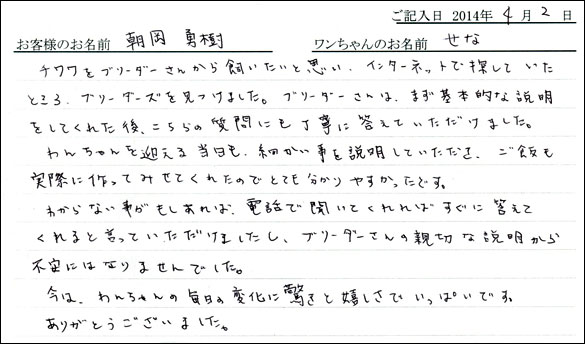 ご記入日 2014年 4月 2日
お客様のお名前 朝岡 勇樹 ワンちゃんのお名前 せな
チワワをブリーダーさんから飼いたいと思い、インターネットで探していた
ところ、ブリーダーズを見つけました。ブリーダーさんは、まず基本的な説明
をしてくれた後、こちらの質問にも丁寧に答えていただけました。
わんちゃんを迎える当日も、細かい事を説明していただき、ご飯も
実際に作ってみせてくれたのでとても分かりやすかったです。
わからない事がもしあれば、電話で聞いてくれればすぐに答えて
くれると言っていただけましたし、ブリーダーさんの親切な説明から
不安にはなりませんでした。
今は、わんちゃんの毎日の変化に驚きと嬉しさでいっぱいです。
ありがとうございました。